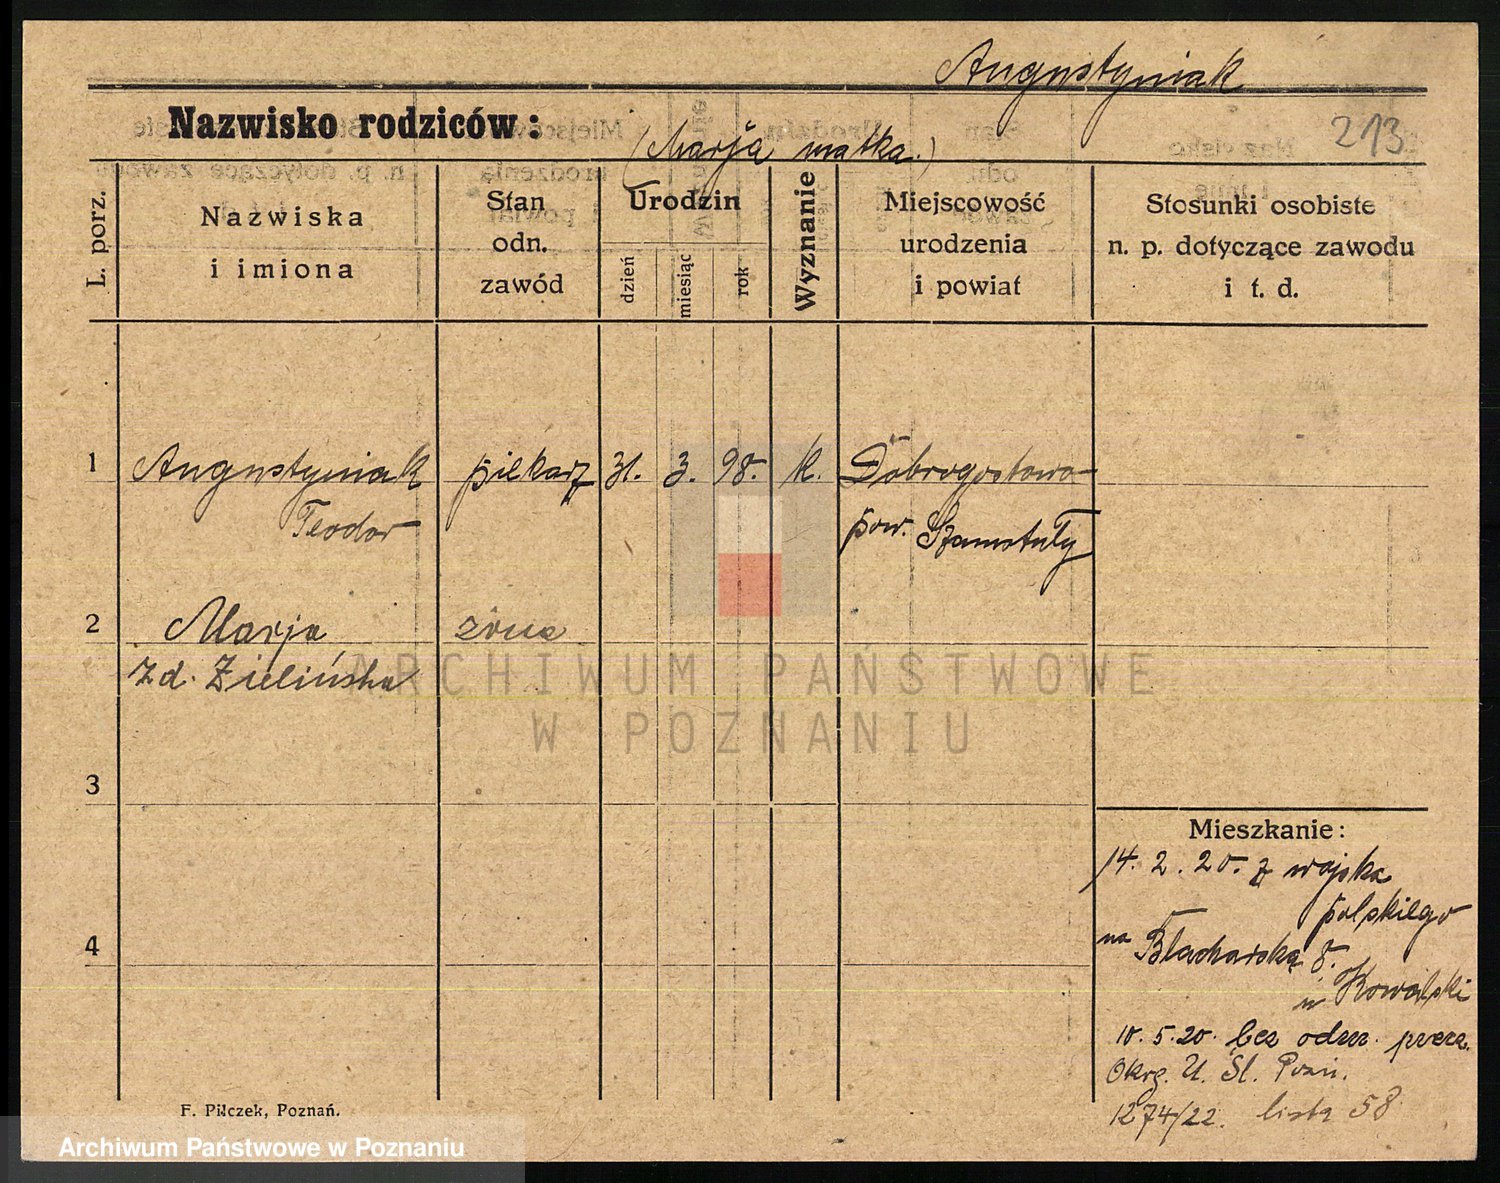 Augustyniak
Nazwisko rodziców:
213
(Marja matka.)
L. porz.
Nazwiska
i imiona
Stan
odn.
zawód
Urodzin
dzień
miesiąc
rok
Wyznanie
Miejscowość
urodzenia
i powiat
Stosunki osobiste
n. p. dotyczące zawodu
i t. d.
1 Augustyniak piekarz 31. 3. 98. k. Dobrogostowo
Teodor pow. Szamotuły
2 Marja żona
z d. Zielińska
ARCHIWUM PAŃSTWOWE
W POZNANIU
3
4
Mieszkanie:
14. 2. 20. z wojska
polskiego
na Blacharską 8.
u Kowalski
10. 5. 20. bez odm. przez
Okrę. U. Śl. Pozn.
1274/22. lista 58
F. Pilczek, Poznań.
Archiwum Państwowe w Poznaniu